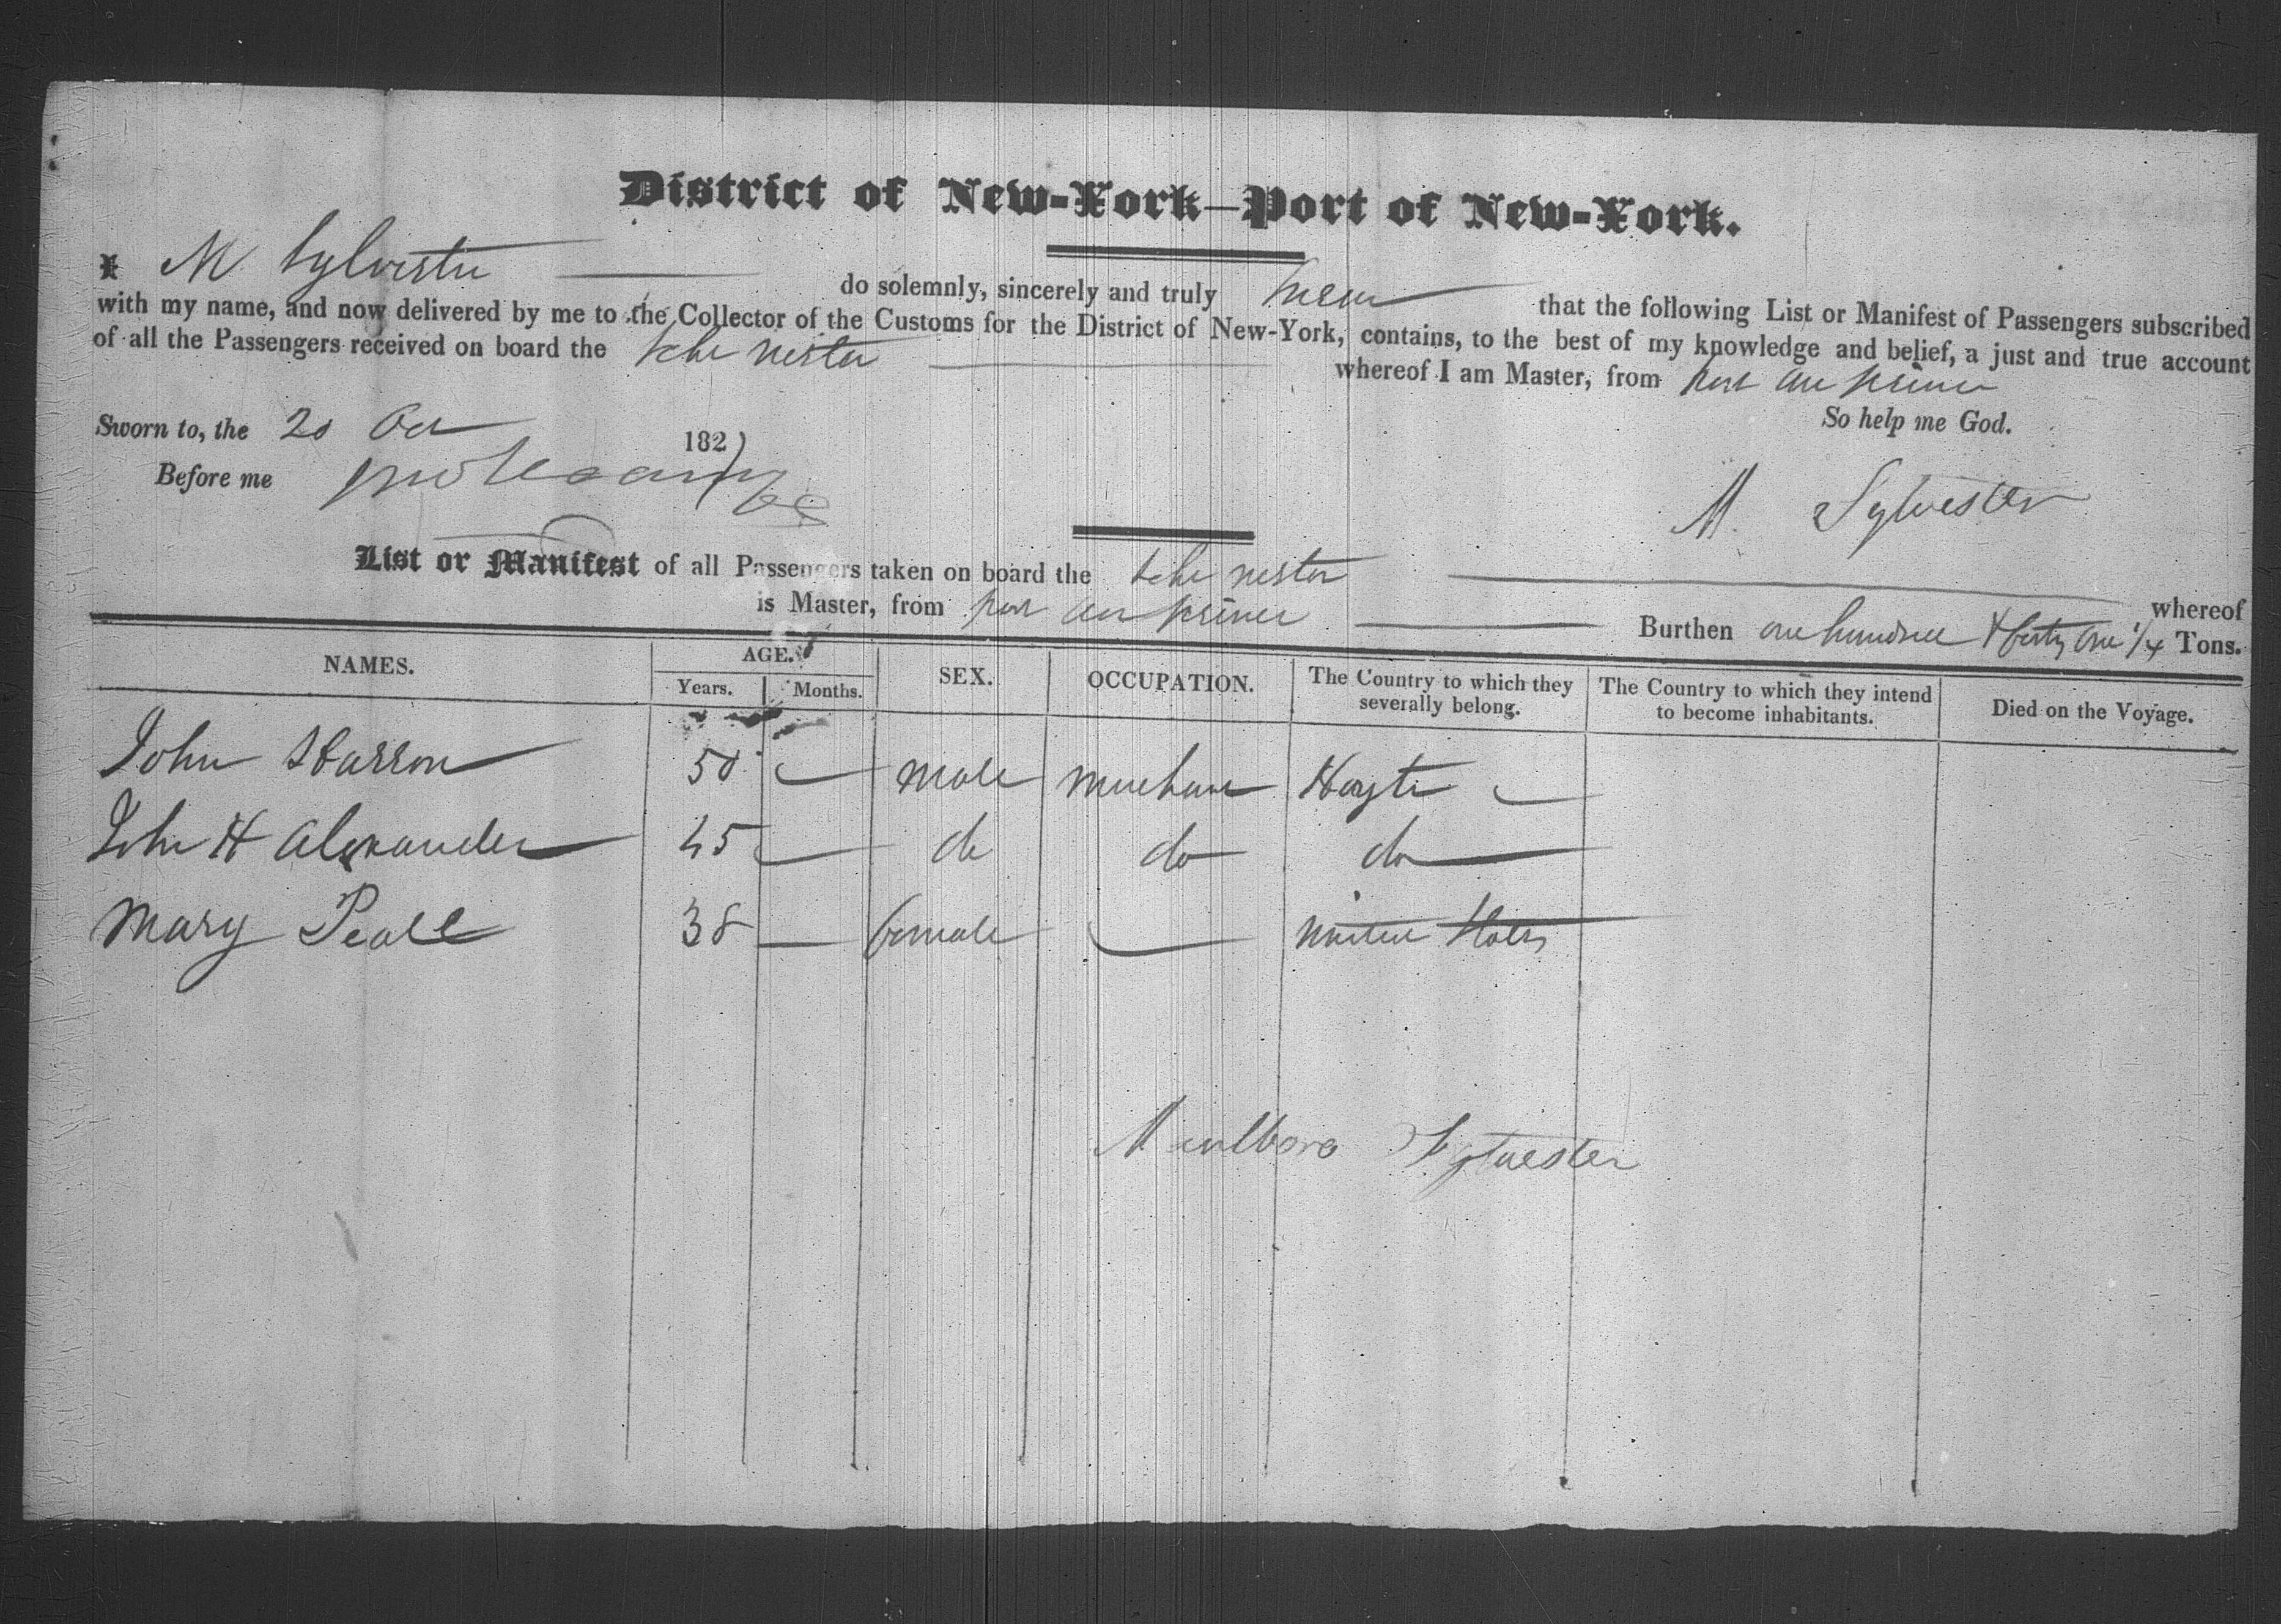 District of New-York—Port of New-York.
I M Sylvester do solemnly, sincerely and truly swear that the following List or Manifest of Passengers subscribed
with my name, and now delivered by me to the Collector of the Customs for the District of New-York, contains, to the best of my knowledge and belief, a just and true account
of all the Passengers received on board the Schr Nestor whereof I am Master, from port au prince
So help me God.
Sworn to, the 20 Oct 182
Before me
M. Sylvester
List or Manifest of all Passengers taken on board the Schr Nestor whereof
is Master, from port au prince Burthen one hundred & forty one 1/4 Tons.
NAMES. AGE. SEX. OCCUPATION. The Country to which they severally belong. The Country to which they intend to become inhabitants. Died on the Voyage.
Years. Months.
John 50 male merchant Hayti
John H Alexander 45 do do do
Mary 38 female United States
Marlboro Sylvester